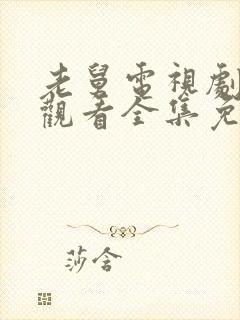 老舅電視劇
觀看全集免
莎含